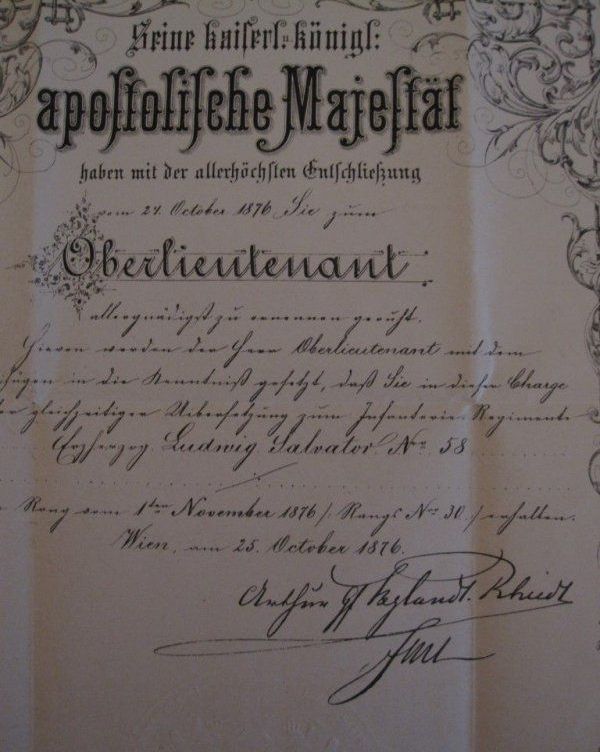 Seine kaiserl: u: königl:
apostolische Majestät
haben mit der allerhöchsten Entschließung
vom 24. October 1876 Sie zum
Oberlieutenant
allergnädigst zu ernennen geruht.
Hievon werden der Herr Oberlieutenant mit dem
fügen in die Kenntniß gesetzt, daß Sie in dieser Charge
gleichzeitiger Uebersetzung zum Infanterie-Regimente
Erzherzog Ludwig Salvator No 58
Rang vom 1ten November 1876 / Rangs No 30 / erhalten.
Wien, am 25. October 1876.
Arthur Gf Bylandt-Rheidt